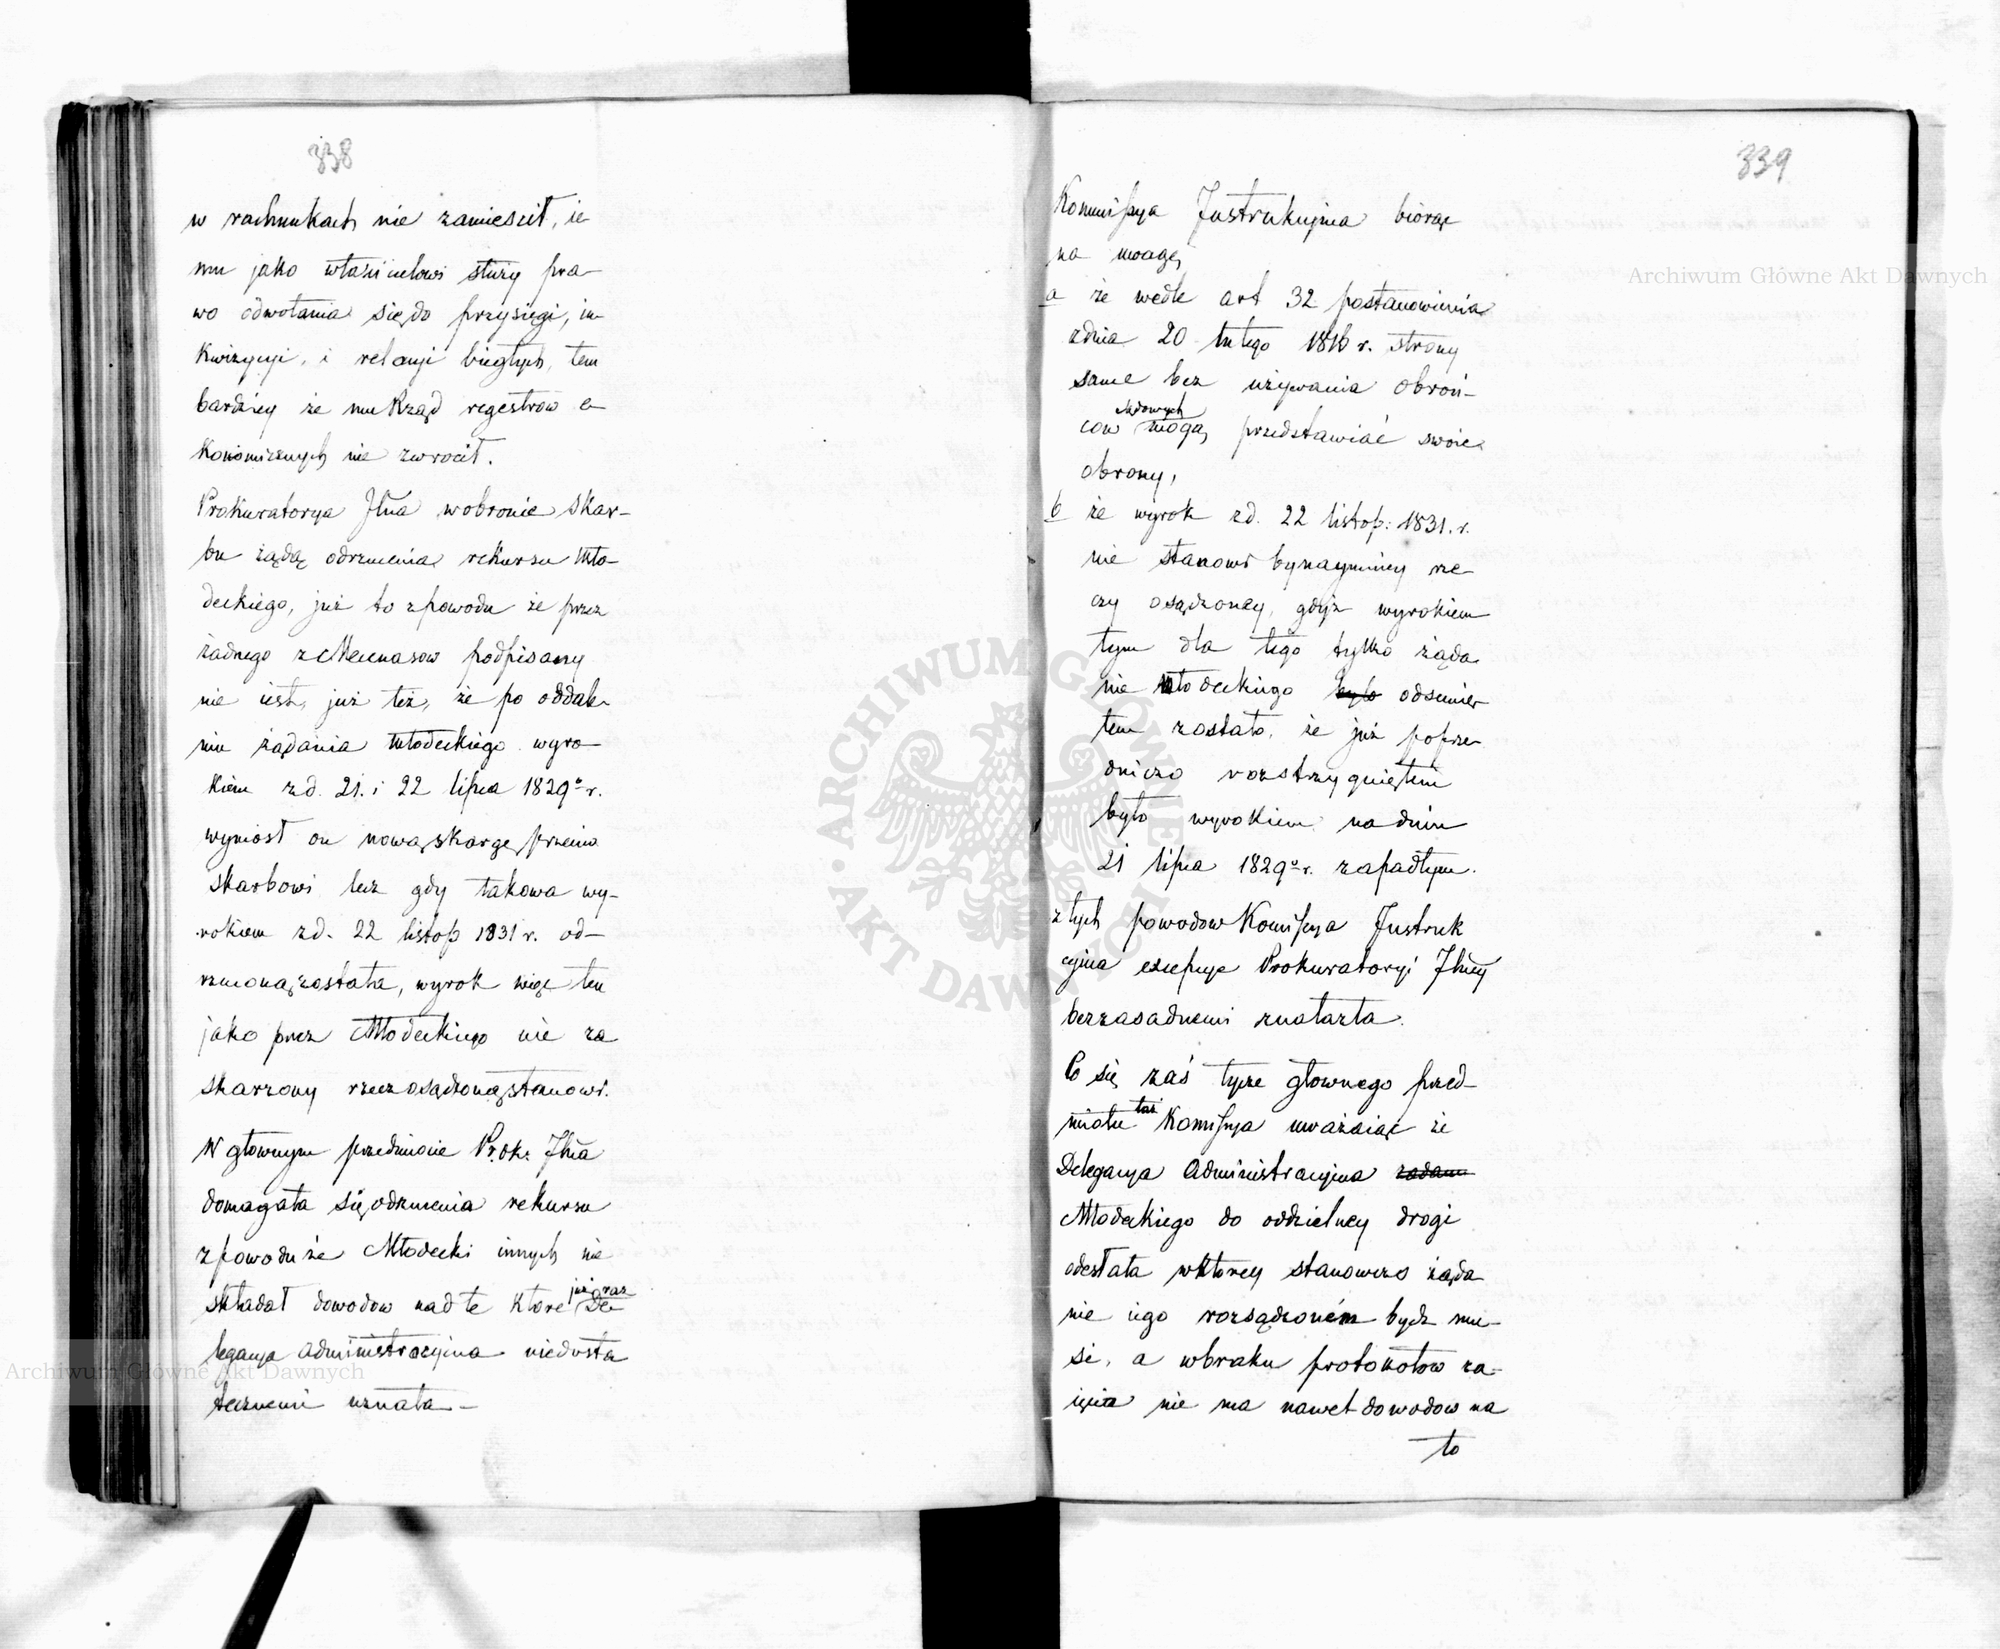 338
w rachunkach nie zamieścił, ie
mu jako właścicielowi służy pra-
wo odwołania się do przysięgi, in-
kwizycyi, i relacyi biegłych, tem
bardziey że mu Rząd regestrow e-
konomicznych nie zwrocił.
Prokuratorya Jlna w obronie Skar-
bu żąda odrzucenia rekursu Mło-
deckiego, już to z powodu że przez
żadnego z Mecenasow podpisany
nie iest, już też, że po oddale-
niu żądania Młodeckiego wyro-
kiem z d. 21. i 22 lipca 1829 r.
wyniosł on nową skargę przeciw
Skarbowi lecz gdy takowa wy-
rokiem z d. 22 listop 1831 r. od-
rzuconą została, wyrok więc ten
jako przez Młodeckiego nie za
skarżony rzecz osądzoną stanowi.
W głownym przedmiocie Prok: Jlna
domagała się odrzucenia rekursu
z powodu że Młodecki innych nie
składał dowodow nad te ktore już raz De
legacya Administracyina niedosta
tecznemi uznała. –
339
Kommissya Instrukcyina biorąc
na uwagę,
a że wedle art 32 postanowienia
z dnia 20 lutego 1816 r. strony
same bez używania obroń-
cow sądowych mogą przedstawiać swoie
obrony,
b że wyrok z d. 22 listop: 1831. r.
nie stanowi bynaymniey rze-
czy osądzoney, gdyż wyrokiem
tym dla tego tylko żąda
nie Młodeckiego było odsunię-
tem zostało, że już poprze-
dniczo rozstrzygniętem
było wyrokiem na dniu
21 lipca 1829 r. zapadłym.
z tych powodow Komissya Instruk
cyina excepcye Prokuratoryi Jlney
bezzasadnemi znalazła.
Co się zaś tycze głownego przed-
miotu taż Komissya uważaiąc że
Delegacya Administracyina
Młodeckiego do oddzielney drogi
odesłała w ktorey stanowczo żąda
nie iego rozsądzoném bydź mu-
si, a w braku protokołow za-
ięcia nie ma nawet dowodow na
to
Archiwum Główne Akt Dawnych
Archiwum Główne Akt Dawnych
ARCHIWUM GŁÓWNE AKT DAWNYCH